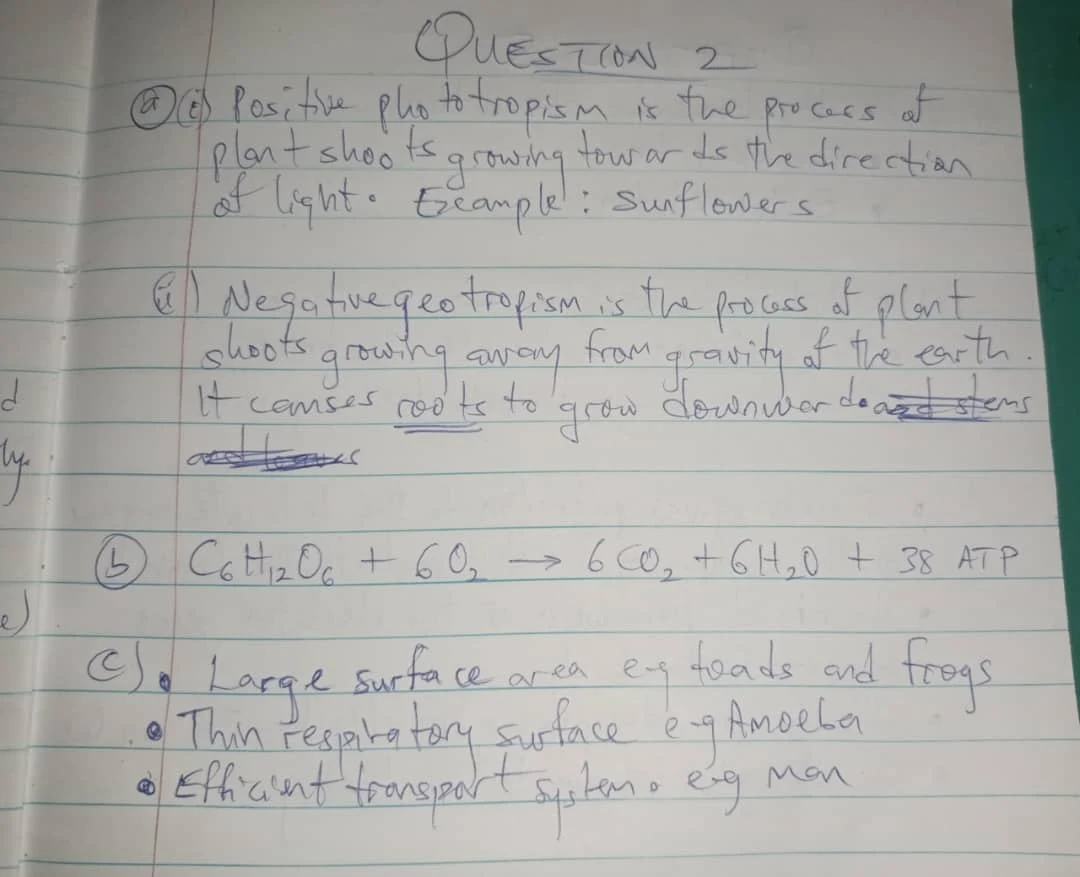 QUESTION 2
(a) (i) Positive phototropism is the process of
plant shoots growing towards the direction
of light. Example: Sunflowers
(ii) Negative geotropism is the process of plant
shoots growing away from gravity of the earth.
It causes roots to grow downwards and stems
d
ly.
(b) C₆H₁₂O₆ + 6O₂ → 6CO₂ + 6H₂O + 38 ATP
e)
(c). • Large surface area e-g toads and frogs
• Thin respiratory surface e-g Amoeba
• Efficient transport system. e-g man